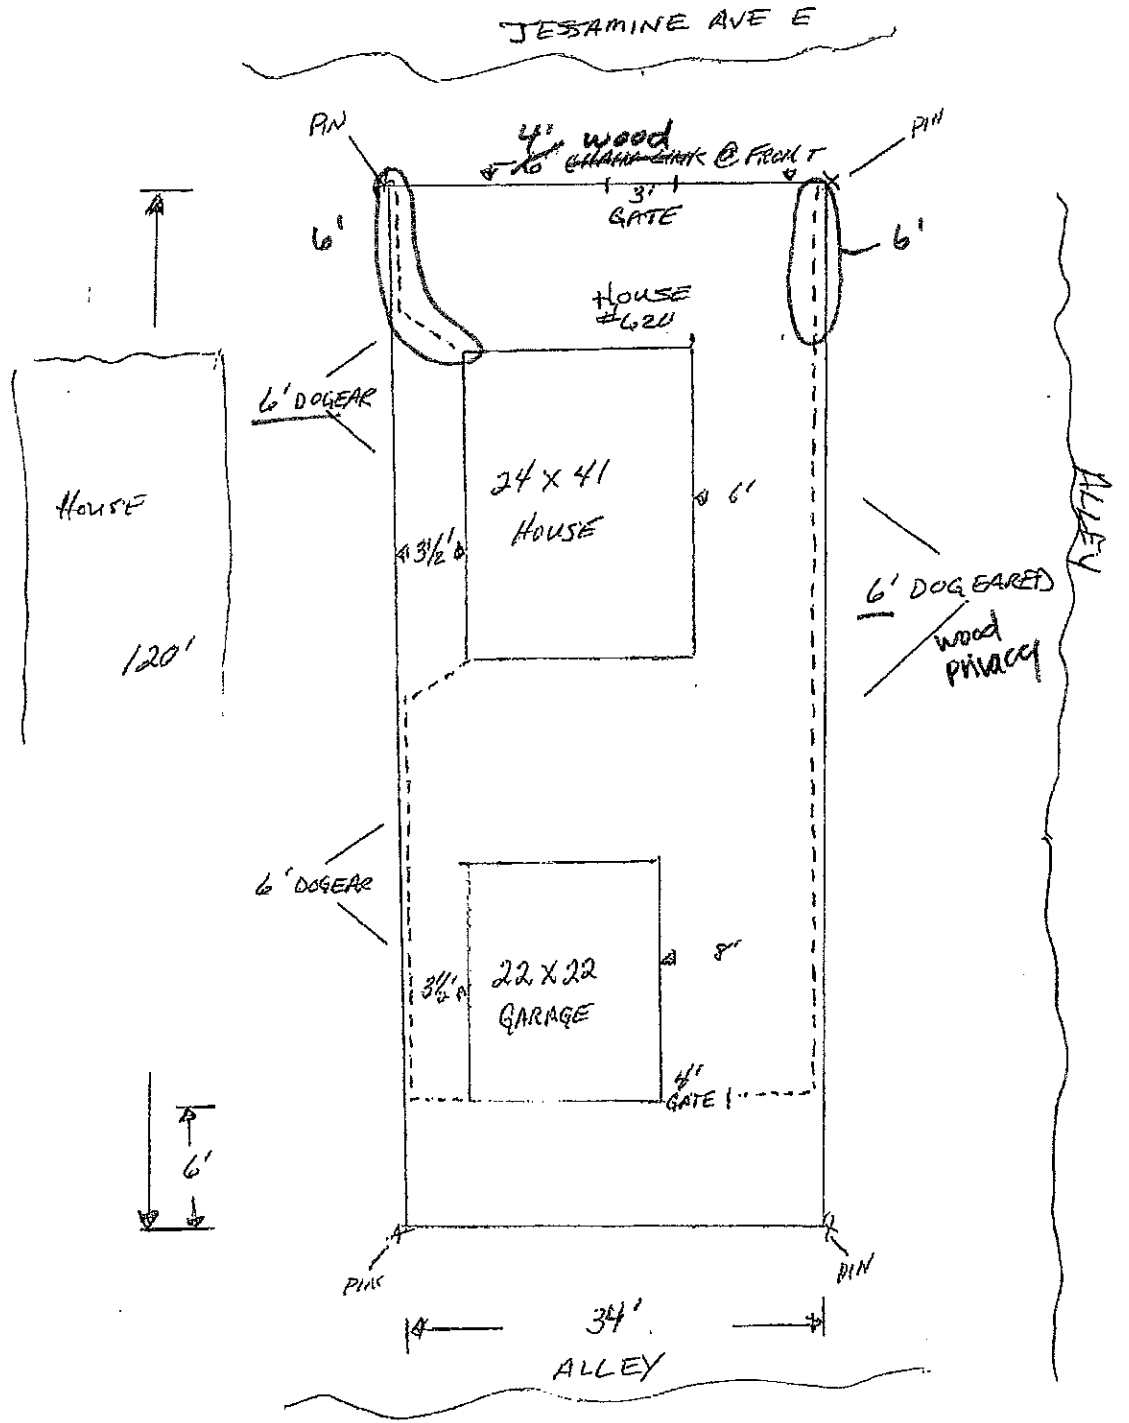 JESSAMINE AVE E
PIN
PIN
4' wood
CHAIN LINK @ FRONT
3'
GATE
6'
6'
HOUSE
#620
6' DOGEAR
24 X 41
HOUSE
6'
HOUSE
3 1/2'
ALLEY
6' DOGEARED
wood
privacy
120'
6' DOGEAR
8'
3 1/2'
22 X 22
GARAGE
GATE
6'
PIN
PIN
34'
ALLEY